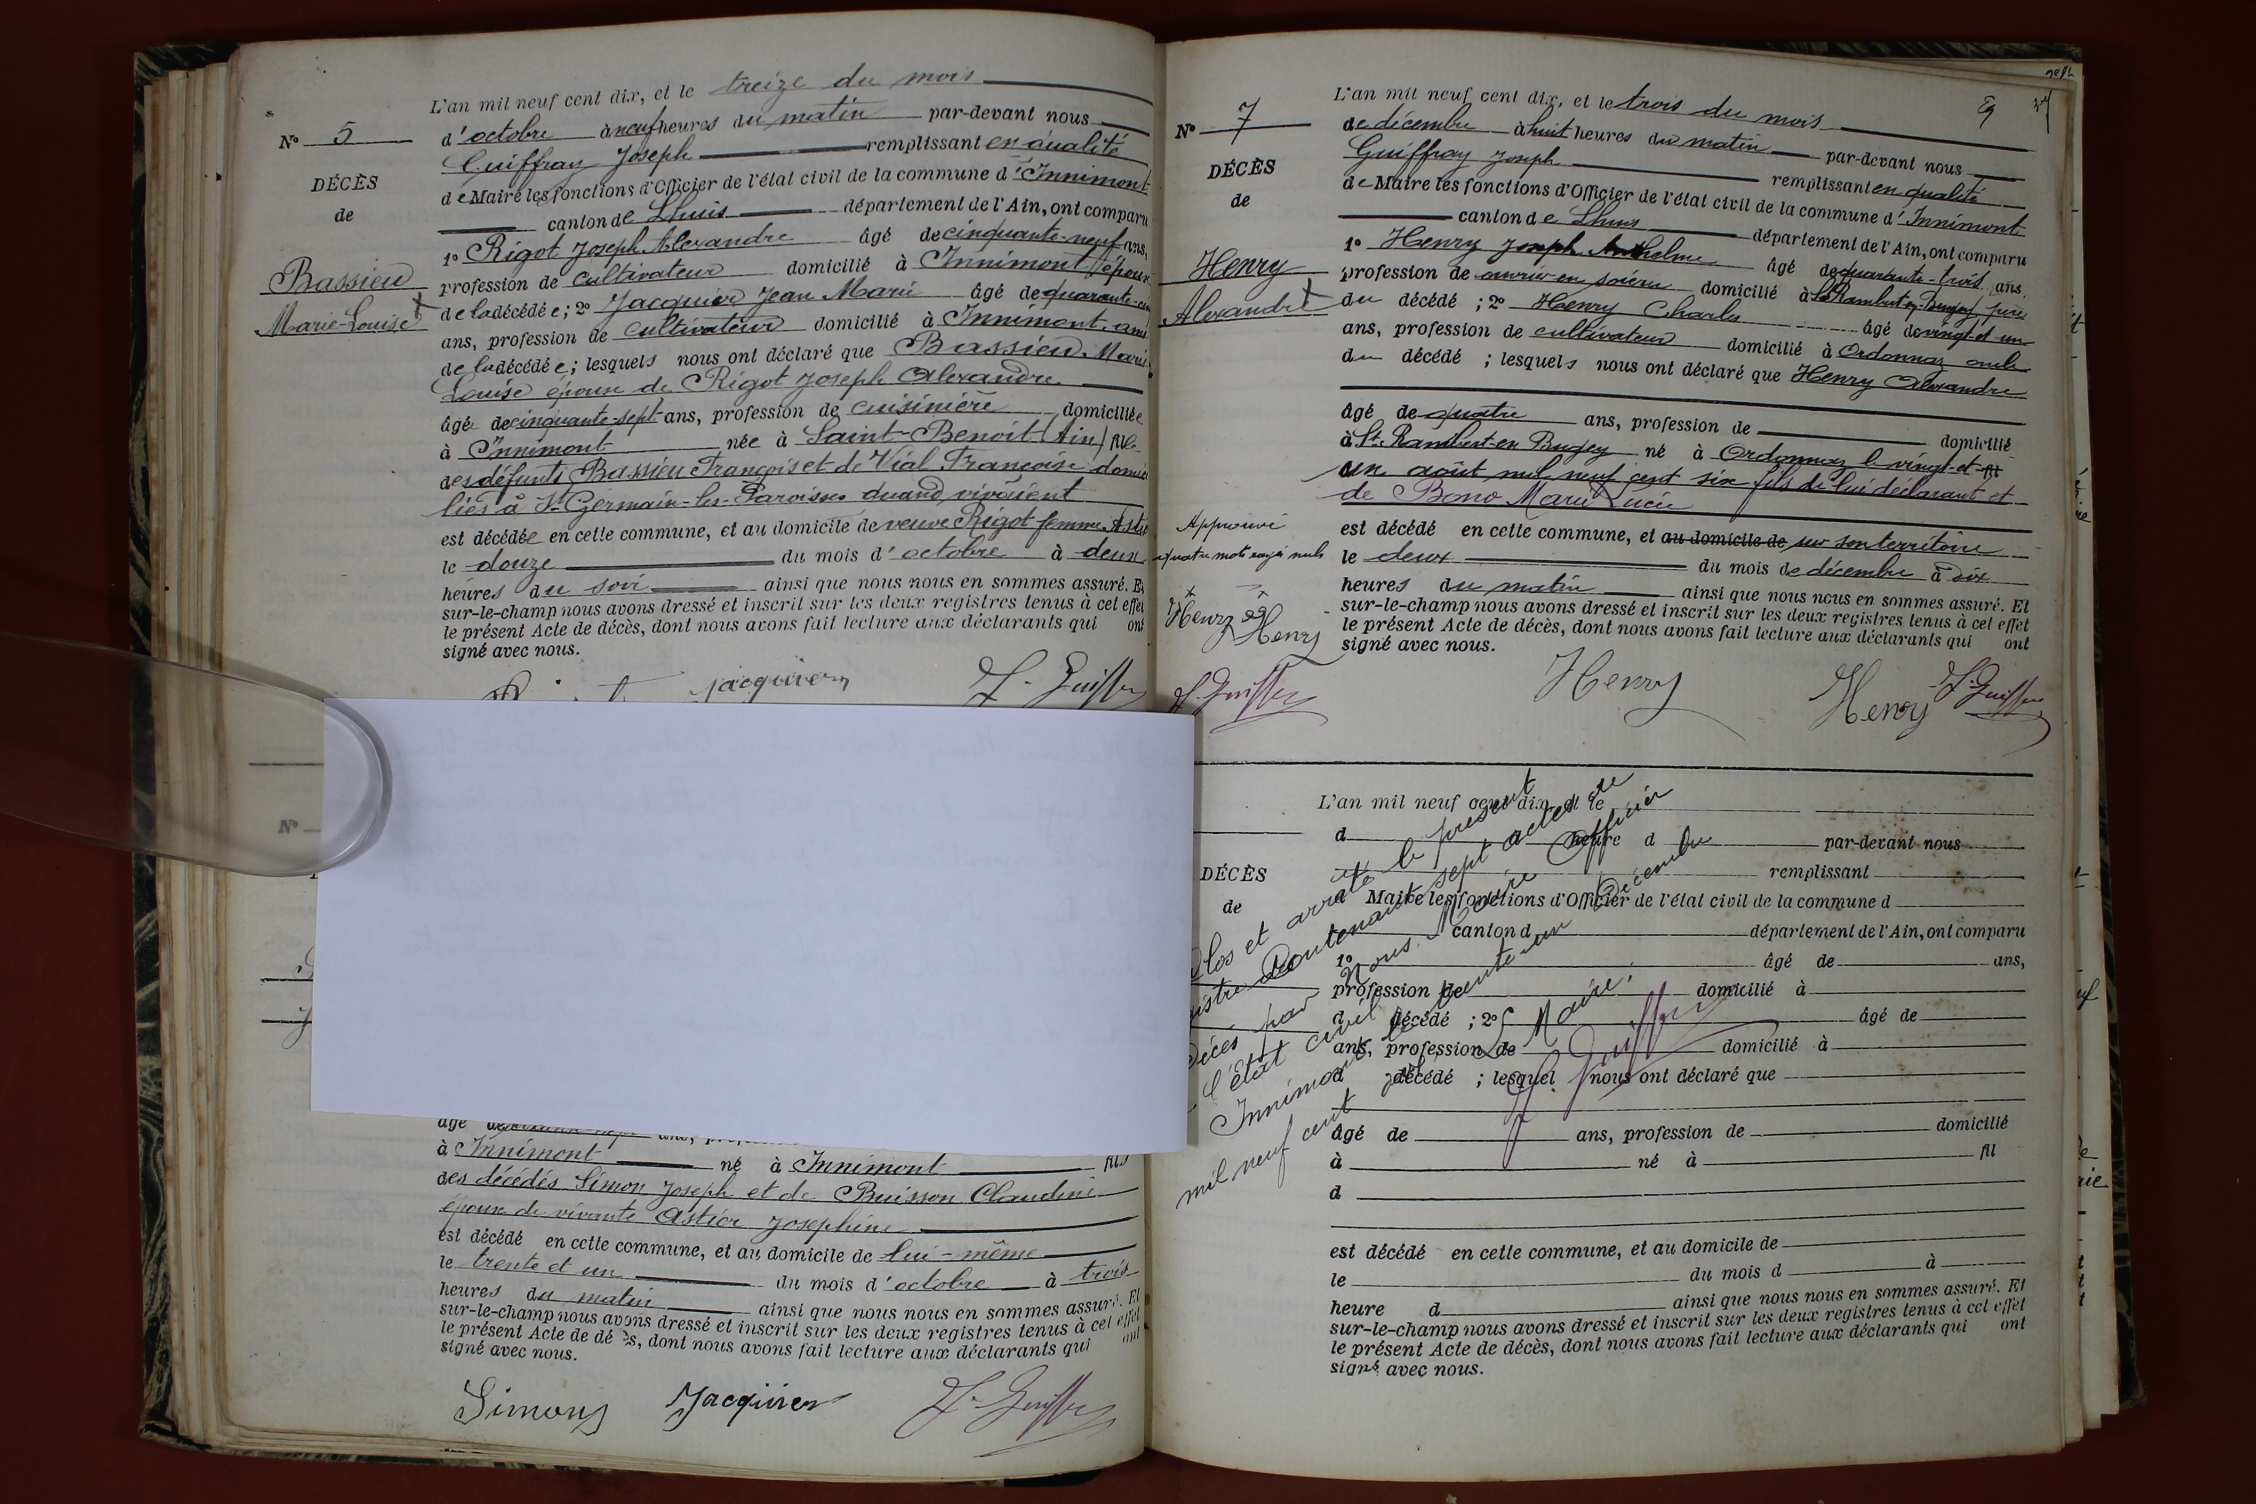 L'an mil neuf cent dix, et le treize du mois
N° 5
d'octobre à neuf heures du matin par-devant nous
Guiffray Joseph remplissant en qualité
DÉCÈS
de Maire les fonctions d'Officier de l'état civil de la commune d'Innimont
de
canton de Lhuis département de l'Ain, ont comparu
1° Rigot Joseph Alexandre âgé de cinquante-neuf ans,
Bassieu
profession de cultivateur domicilié à Innimont époux
Marie-Louise
de la décédée; 2° Jacquier Jean Marie âgé de quarante-cinq
ans, profession de cultivateur domicilié à Innimont, ami
de la décédée; lesquels nous ont déclaré que Bassieu Marie
Louise épouse de Rigot Joseph Alexandre
âgée de cinquante-sept ans, profession de cuisinière domiciliée
à Innimont née à Saint-Benoit (Ain) fille
des défunts Bassieu François et de Vial Françoise domici
liés à St Germain-les-Paroisses quand vivaient
est décédée en cette commune, et au domicile de veuve Rigot femme
le douze du mois d'octobre à deux
heures du soir ainsi que nous nous en sommes assuré. Et
sur-le-champ nous avons dressé et inscrit sur les deux registres tenus à cet effet
le présent Acte de décès, dont nous avons fait lecture aux déclarants qui ont
signé avec nous.
Jacquier J. Guiffray
N°
à Innimont né à Innimont fils
des décédés Simon Joseph et de Buisson Claudine
époux de vivante Astier Joséphine
est décédé en cette commune, et au domicile de lui-même
le trente et un du mois d'octobre à trois
heures du matin ainsi que nous nous en sommes assuré. Et
sur-le-champ nous avons dressé et inscrit sur les deux registres tenus à cet effet
le présent Acte de décès, dont nous avons fait lecture aux déclarants qui ont
signé avec nous.
Simon Jacquier J. Guiffray
L'an mil neuf cent dix, et le trois du mois
N° 7
de décembre à huit heures du matin par-devant nous
Guiffray Joseph remplissant en qualité
DÉCÈS
de Maire les fonctions d'Officier de l'état civil de la commune d'Innimont
de
canton de Lhuis département de l'Ain, ont comparu
1° Henry Joseph Anthelme âgé de quarante-trois ans,
Henry
profession de ouvrier en soierie domicilié à St Rambert-en-Bugey père
Alexandre
du décédé; 2° Henry Charles âgé de vingt et un
ans, profession de cultivateur domicilié à Ordonnaz oncle
du décédé; lesquels nous ont déclaré que Henry Alexandre
âgé de quatre ans, profession de domicilié
à St-Rambert-en-Bugey né à Ordonnaz le vingt-et-fil
un août mil neuf cent six fils de lui déclarant et
de Bono Marie Lucie
Approuvé
quatre mots rayés nuls
est décédé en cette commune, et au domicile de sur son territoire
le deux du mois de décembre à dix
heures du matin ainsi que nous nous en sommes assuré. Et
sur-le-champ nous avons dressé et inscrit sur les deux registres tenus à cet effet
le présent Acte de décès, dont nous avons fait lecture aux déclarants qui ont
signé avec nous.
Henry
Henry
J. Guiffray
Henry Henry J. Guiffray
L'an mil neuf cent dix, et le
d heure d par-devant nous
remplissant
DÉCÈS
d Maire les fonctions d'Officier de l'état civil de la commune d
de
canton d département de l'Ain, ont comparu
1° âgé de ans,
profession de domicilié à
d décédé; 2° âgé de
ans, profession de domicilié à
d décédé; lesquel nous ont déclaré que
âgé de ans, profession de domicilié
à né à fil
d
est décédé en cette commune, et au domicile de
le du mois d à
heure d ainsi que nous nous en sommes assuré. Et
sur-le-champ nous avons dressé et inscrit sur les deux registres tenus à cet effet
le présent Acte de décès, dont nous avons fait lecture aux déclarants qui ont
signé avec nous.
Clos et arrêté le présent
registre contenant sept actes de
décès par Nous Maire Officier
de l'État civil
Innimont le trente-un Décembre
mil neuf cent
Le Maire,
J. Guiffray